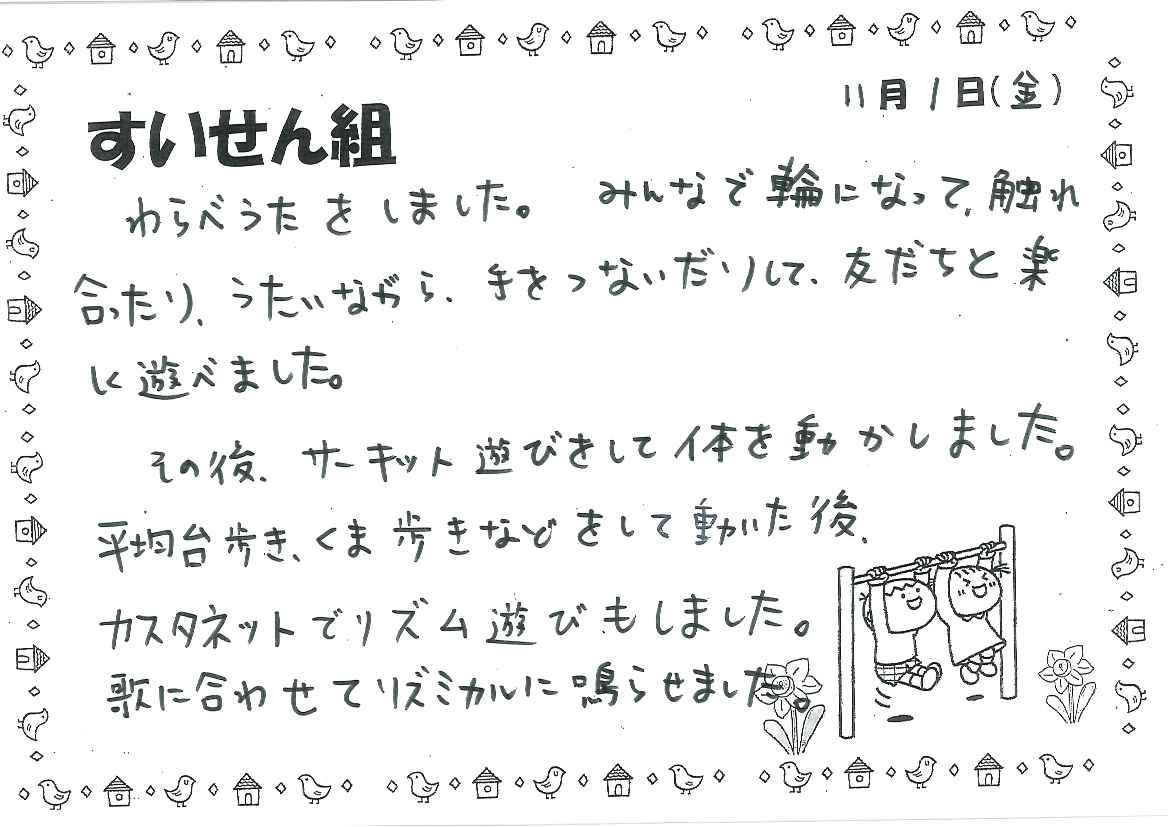 11月1日(金)
すいせん組
わらべうたをしました。 みんなで輪になって、触れ
合ったり、うたいながら、手をつないだりして、友だちと楽
しく遊べました。
その後、サーキット遊びをして体を動かしました。
平均台歩き、くま歩きなどをして動いた後、
カスタネットでリズム遊びもしました。
歌に合わせてリズミカルに鳴らせました。